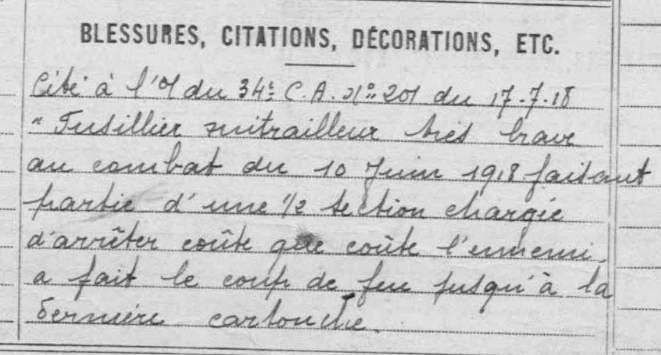 BLESSURES, CITATIONS, DÉCORATIONS, ETC.
Cité à l'O/ du 34e C.A. No 201 du 17-7-18
"Fusillier mitrailleur très brave
au combat du 10 Juin 1918 faisant
partie d'une 1/2 section chargée
d'arrêter coûte que coûte l'ennemi,
a fait le coup de feu jusqu'à la
dernière cartouche.